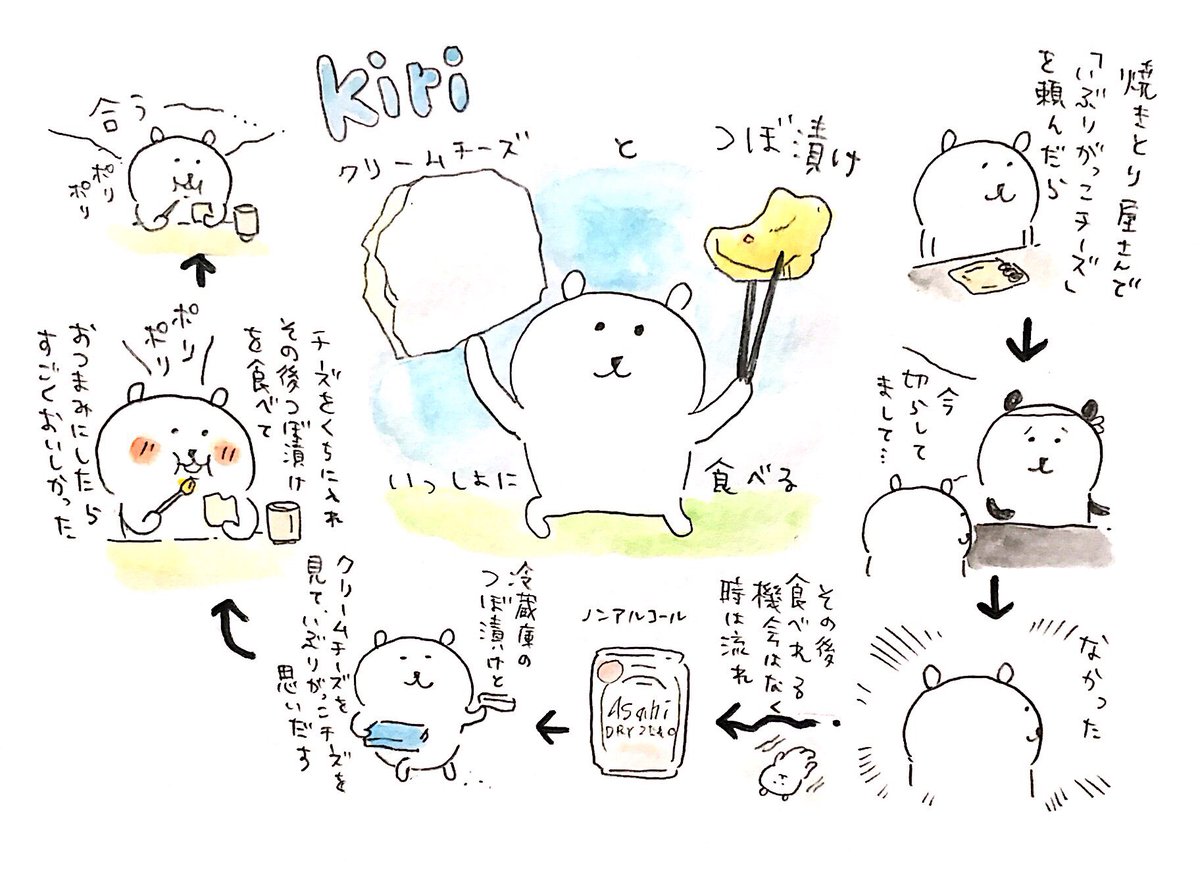 kiri
クリームチーズ
と
つぼ漬け
いっしょに
食べる
焼きとり屋さんで
「いぶりがっこチーズ」
を頼んだら
今
切らして
まして…
なかった
その後
食べれる
機会はなく
時は流れ
ノンアルコール
Asahi
DRY ZERO
冷蔵庫の
つぼ漬けと
クリームチーズを
見て、いぶりがっこチーズを
思いだす
チーズをくちに入れ
その後つぼ漬け
を食べて
ポリ
ポリ
おつまみにしたら
すごくおいしかった
合う〜…
ポリ
ポリ